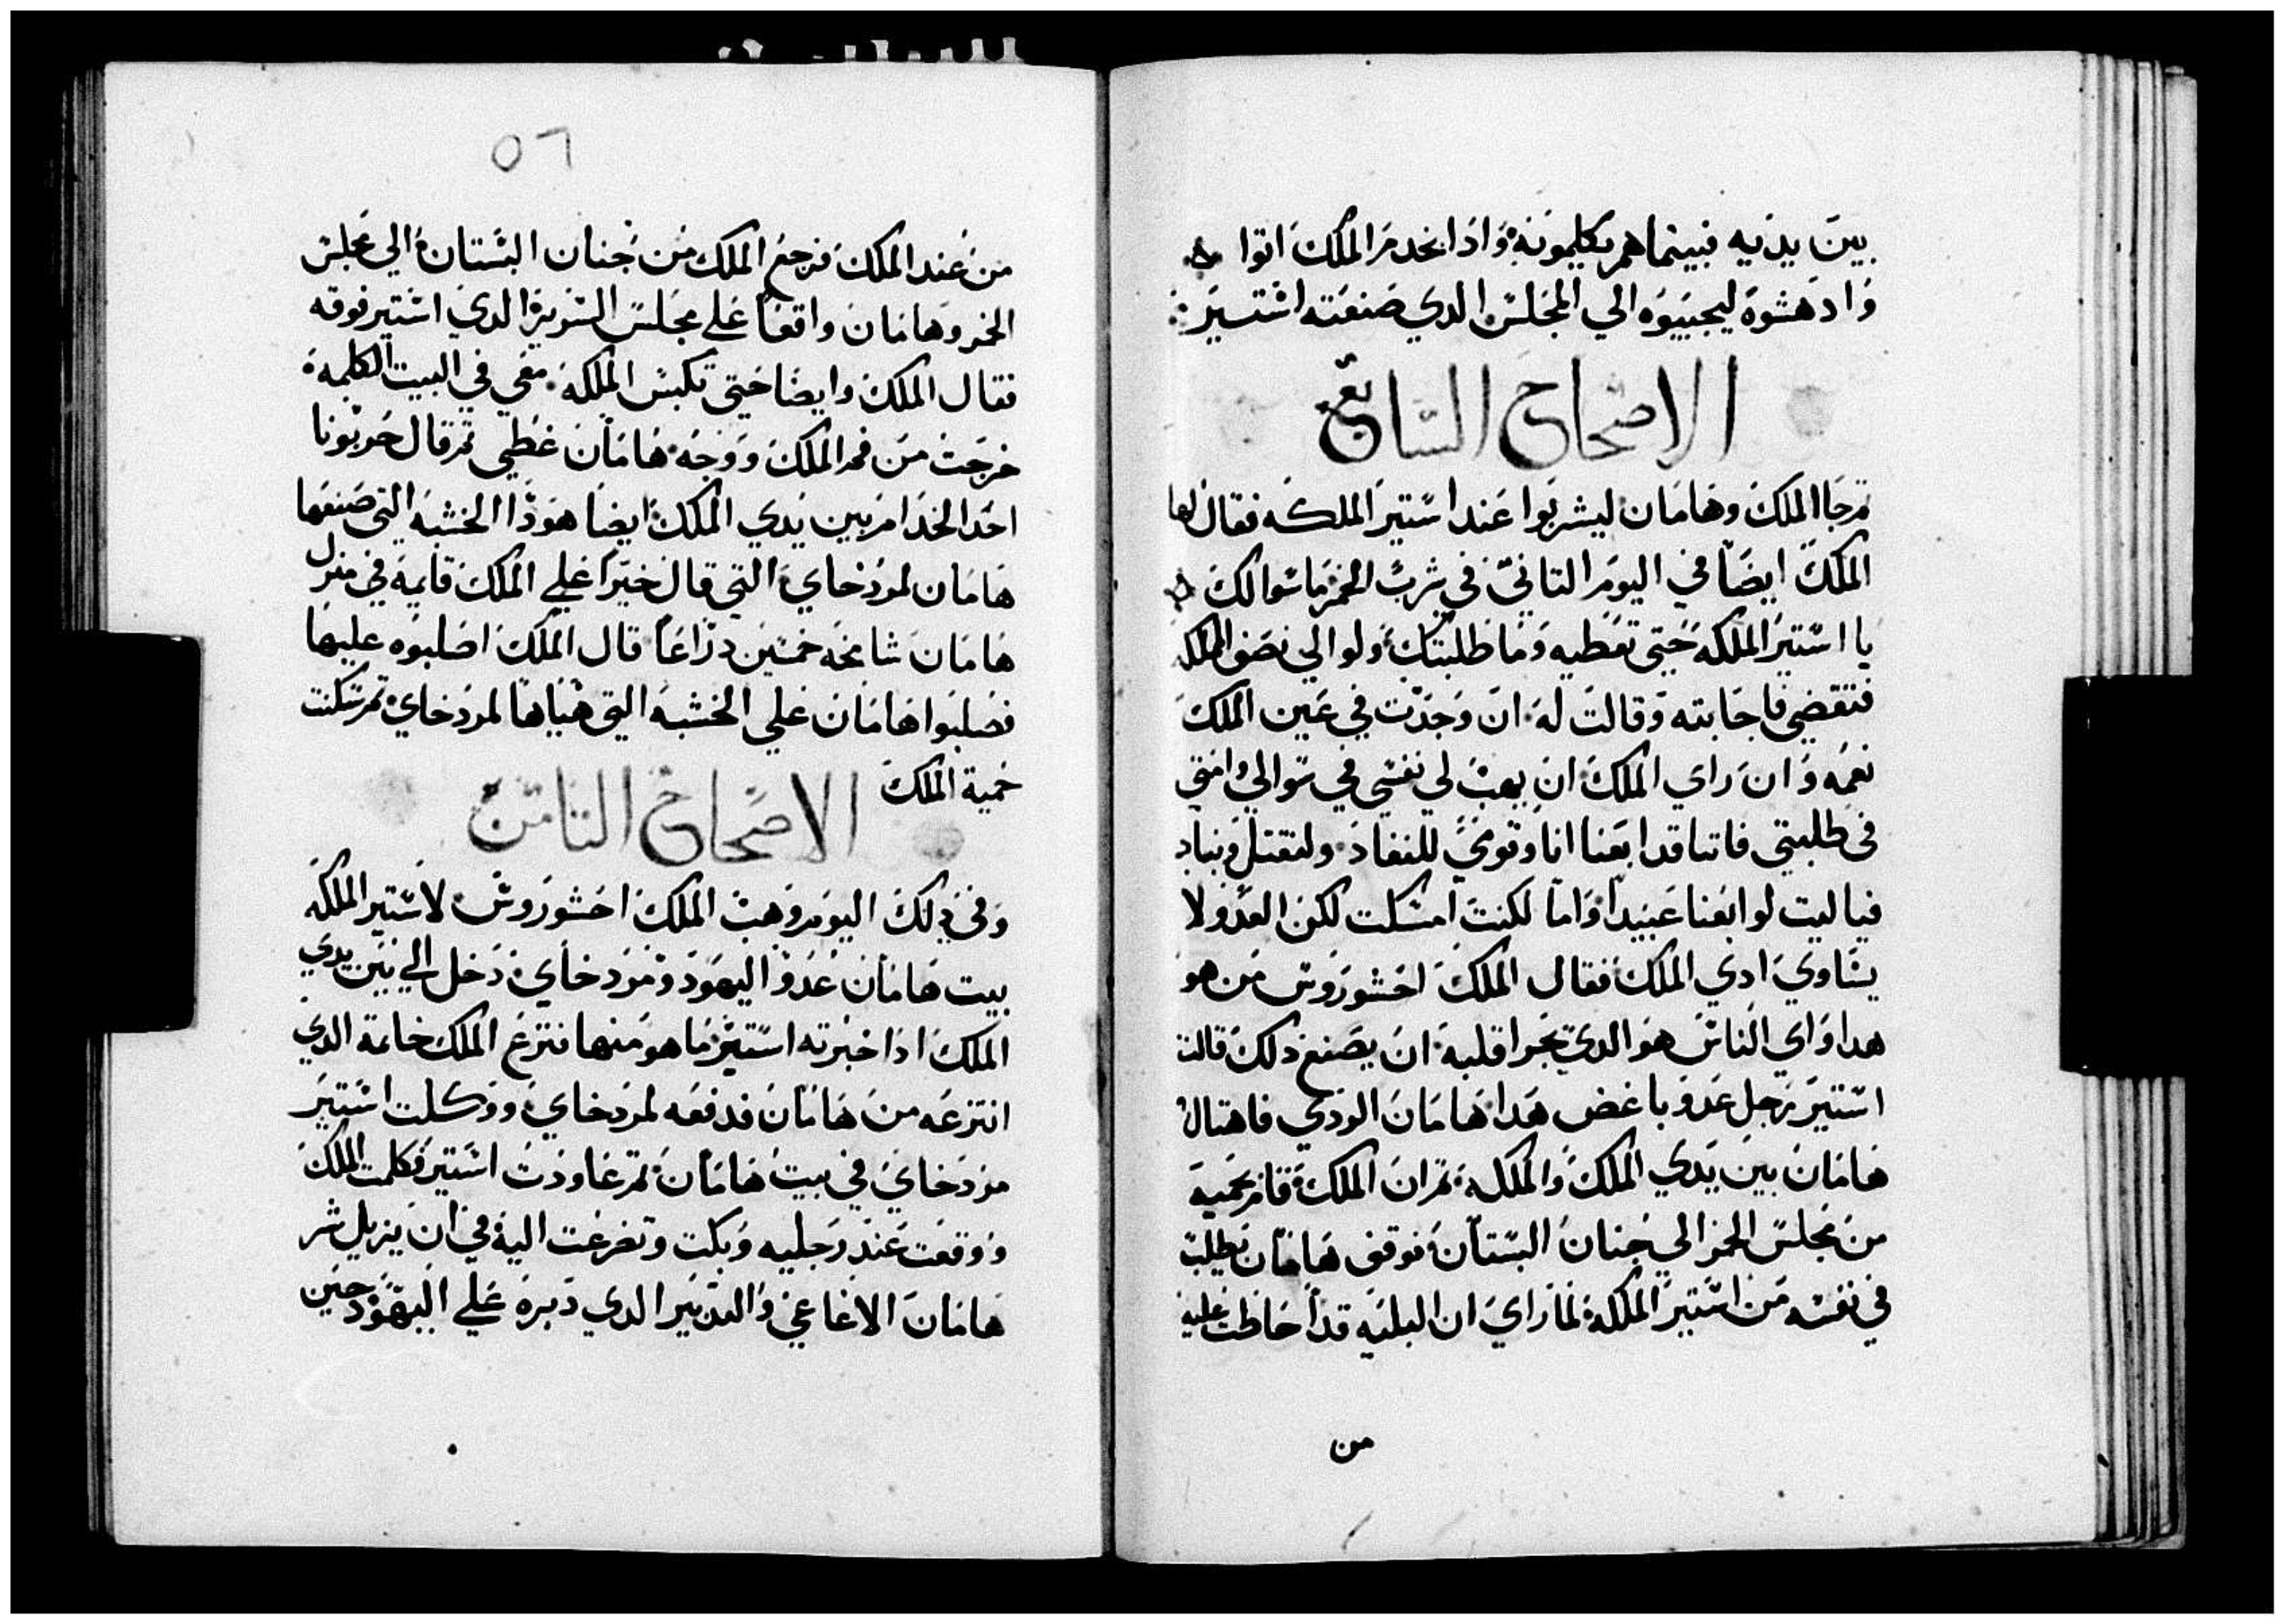 بين يديه فبينما هم يكلمونه وادا بخدم الملك اتوا
وادهشوه ليجيبوه الي المجلس الدي صنعته استير
الاصحاح السابع
تم جا الملك وهامان ليشربوا عند استير الملكه فقال لها
الملك ايضا في اليوم التاني في شرب الخمر ما سوالك
يا استير الملكه حتي تعطيه وما طلبتك ولو الي نصف الملكه
فتقضي فاجابته وقالت له ان وجدت في عين الملك
نعمه وان راي الملك ان يهب لي نفسي في سوالي وامتي
في طلبتي فاننا قد ابعنا انا وقومي للنفاد ولنقتل ونباد
فيا ليت لو ابعنا عبيدا واما لكنت امسكت لكن العدو لا
يساوي ادي الملك فقال الملك احشوروش من هو
هدا واي الناس هو الدي تجرا قلبه ان يصنع دلك قالت
استير رجل عدو باغض هدا هامان الردي فاهتال
هامان بين يدي الملك والملكه تم ان الملك قام بحميه
من مجلس الخمر الي جنان البستان فوقف هامان يطلب
في نفسه من استير الملكه لما راي ان البليه قد احاطت عليه
من
٥٦
من عند الملك فرجع الملك من جنان البستان الي مجلس
الخمر وهامان واقعا علي مجلس السرير الدي استير فوقه
فقال الملك وايضا حتي تكبس الملكه معي في البيت الكلمه
خرجت من فم الملك ووجه هامان غطي تم قال حربونا
احد الخدام بين يدي الملك ايضا هودا الخشبه التي صنعها
هامان لمردخاي التي قال خيرا علي الملك قايمه في منزل
هامان شامخه خمسين دراعا قال الملك اصلبوه عليها
فصلبوا هامان علي الخشبه التي هياها لمردخاي تم سكنت
حمية الملك
الاصحاح التامن
وفي دلك اليوم وهب الملك احشوروش لاستير الملكه
بيت هامان عدو اليهود ومردخاي دخل الي بين يدي
الملك ادا خبرته استير ما هو منها فنزع الملك خاتمه الدي
انتزعه من هامان فدفعه لمردخاي ووكلت استير
مردخاي في بيت هامان تم عاودت استير فكلمت الملك
ووقعت عند رجليه وبكت وتضرعت اليه في ان يزيل شر
هامان الاغاغي والتدبير الدي دبره علي اليهود حين